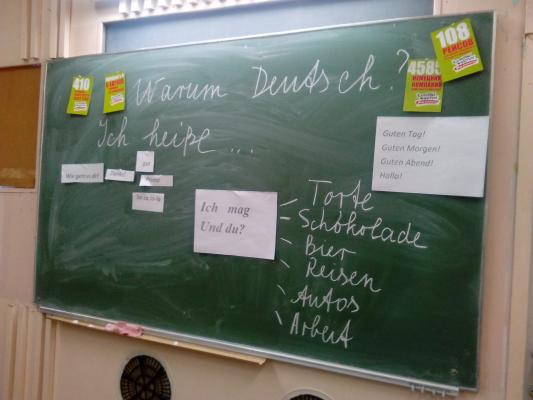 410
108
РЕЙСОВ
Warum Deutsch?
Ich heiße ...
Guten Tag!
Guten Morgen!
Guten Abend!
Hallo!
gut
Wie geht es dir?
Danke!
Ich mag
Und du?
Torte
Schokolade
Bier
Reisen
Autos
Arbeit